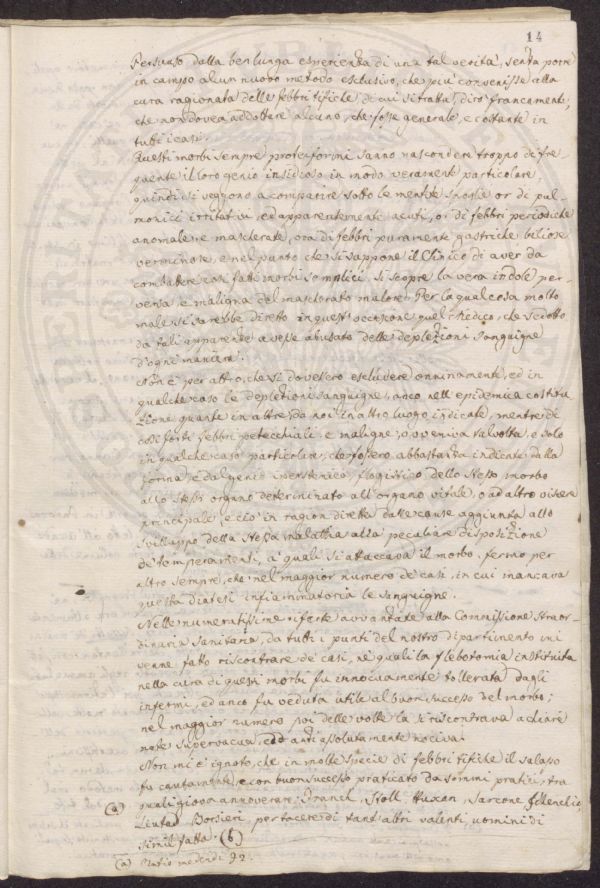 14
Persuaso dalla ben lunga esperienza di una tal verità, senza porre
in campo alcun nuovo metodo esclusivo, che più convenisse alla
cura ragionata delle febbri tifiche, di cui si tratta, dirò francamente,
che non dovea addottarsi alcuno, che fosse generale, e costante in
tutti i casi.
Questi morbi sempre proteiformi sanno nascondere troppo di fre-
quente il loro genio insidioso in modo veramente particolare,
quindi si veggono a comparire sotto le mentite spoglie or di pul-
monici irritativi, ed apparentemente acuti, or di febbri periodiche
anomale, e mascherate, ora di febbri puramente gastriche biliose
verminose, e nel punto che si suppone il Clinico di aver da
combattere così fatti morbi semplici, si scopre la vera indole per-
versa e maligna del mascherato malore. Per la qual cosa molto
male si sarebbe diretto in quest'occasione quel Medico, che sedotto
da tali apparenze avesse abusato delle deplezioni sanguigne
d'ogni maniera.
Non è per altro, che si dovessero escludere onninamente, ed in
qualche caso le deplezioni sanguigne, anco nell'epidemica costitu-
zione quante in altre da noi in altro luogo indicate, mentre di
così forti febbri petecchiali, e maligne, avveniva talvolta, e solo
in qualche caso particolare, che fossero abbastanza indicate dalla
forma, e dal genio iperstenico, flogistico dello stesso morbo
allo stess' organo determinato all'organo vitale, o ad altro viscere
principale, e ciò in ragion diretta dalle cause aggiunte allo
sviluppo della stessa malattia alla peculiare disposizione
de' temperamenti, a' quali si attaccava il morbo, fermo per
altro sempre, che nel maggior numero de' casi, in cui mancava
questa diatesi infiammatoria le sanguigne.
Nelle numeratissime riferte avvanzate alla Commissione Straor-
dinaria Sanitaria, da tutti i punti del nostro dipartimento mi
venne fatto riscontrare de' casi, ne' quali la flebotomia instituita
nella cura di questi morbi fu innocuamente tollerata dagli
infermi, ed anco fu veduta utile al buon successo del morbo;
nel maggior numero poi delle volte la si riscontrava a chiare
note supervacua, ed anzi assolutamente nociva.
Non mi è ignoto, che in molte specie di febbri tifiche il salasso
fu cautamente, e con buon successo praticato da sommi pratici, tra
quali giova annoverare, Franck, Stoll, Huxan, Sarcone,
(a) Lieutad, Borsieri, per tacere di tant'altri valenti uomini di
simil fatta. (b)
(a) Ratio medendi 92.